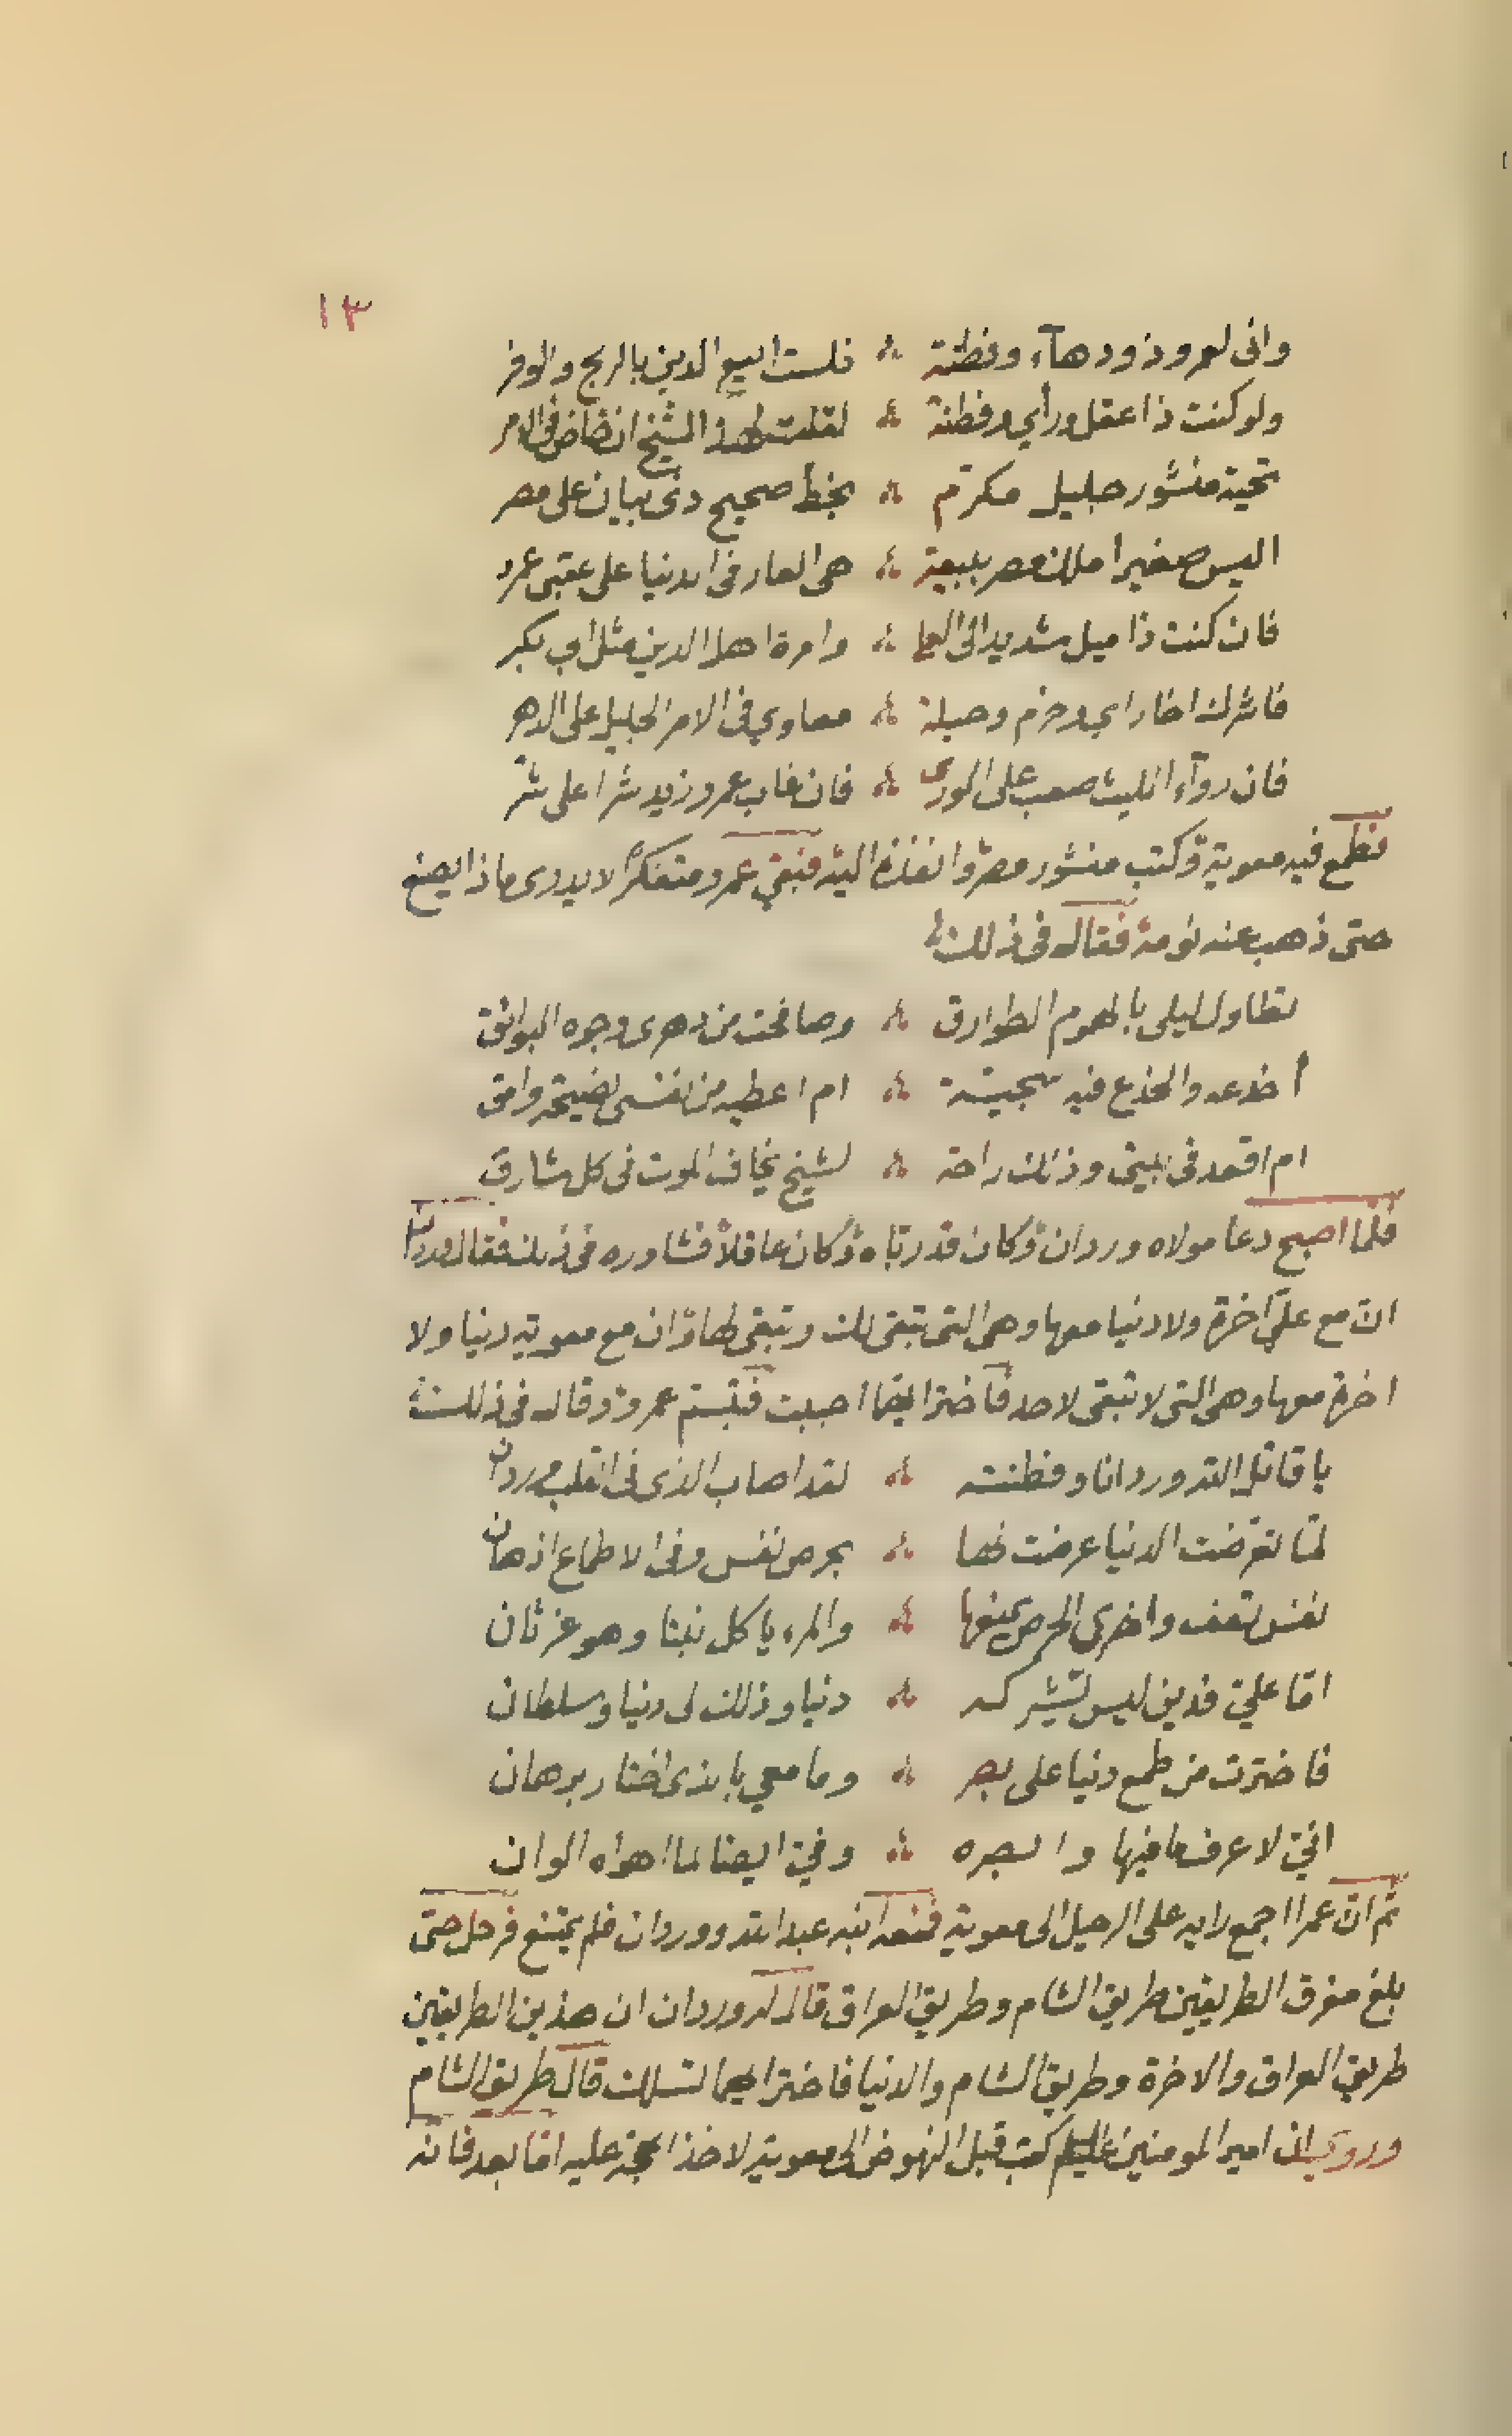 ١٣
وانى لعمرو ذو دهآء وفطنة ۞ فلست ابيع الدين بالربح والوفر
ولو كنت ذا عقل ورأي وفطنة ۞ لقلت لهذا الشيخ ان خاض فى الامر
تحية منشور جليل مكرّم ۞ بخط صحيح ذى بيان على مصر
اليس صغيرا ملك مصر ببيعة ۞ هى العار فى الدنيا على عقبى عمرو
فان كنت ذا ميل شديد الى العلا ۞ وامرة اهل الدين مثل ابى بكر
فاشرك اخا راى وحزم وحيلة ۞ معاوي فى الامر الجليل على الدهر
فان دوآء الليث صعب على الورى ۞ فان غاب عمرو زيد شرا على شرّ
فطمع فيه معوية وكتب منشور مصر وانفذه اليه فبقي عمرو متفكرًا لا يدرى ماذا يصنع
حتى ذهب عنه نومه فقال فى ذلك
تطاول ليلى بالهموم الطوارق ۞ وصافحت من دهرى وجوه البوائق
أ اخدعه والخدع فيه سجيتة ۞ ام اعطيه من نفسى نصيحة وامق
ام اقعد فى بيتى وذلك راحة ۞ لشيخ يخاف الموت فى كل شارق
فلما اصبح دعا مولاه وردان وكان قد ربّاه وكان عاقلاً فشاوره فى ذلك فقال وردان
انّ مع عليّ اخرة ولا دنيا معها وهى التى تبقى لك وتبقى لها وان مع معوية دنيا ولا
اخرة معها وهى التى لا تبقى لاحد فاختر ايهما احببت فتبسّم عمرو وقال فى ذلك
يا قاتل الله وردانا وفطنته ۞ لقد اصاب الذى فى القلب وردان
لمّا تعرّضت الدنيا عرضت لها ۞ بحرص نفس وفى الاطماع اذهان
نفس تعف واخرى الحرص يمنعها ۞ والمرء ياكل نتبنا وهو غرثان
امّا علىّ فدين ليس تشركه ۞ دنيا وذلك لى دنيا وسلطان
فاخترت من طمع دنيا على بصر ۞ وما معي بالذى اختار برهان
انّي لاعرف ما فيها وابصره ۞ وفيّ ايضا لما اهواه الوان
ثم انّ عمرا اجمع رايه على الرحيل الى معوية فمنعه ابنه عبد الله ووردان فلم يمتنع فرحل حتى
بلغ مفرق الطريقين طريق الشام وطريق العراق قال له وردان ان هذين الطريقين
طريق العراق والاخرة وطريق الشام والدنيا فاختر ايهما لتسلك قال طريق الشام
وروى ان امير المومنين عليه السلم كتب قبل النهوض الى معوية لاخذ الحجة عليه امّا بعد فانّه